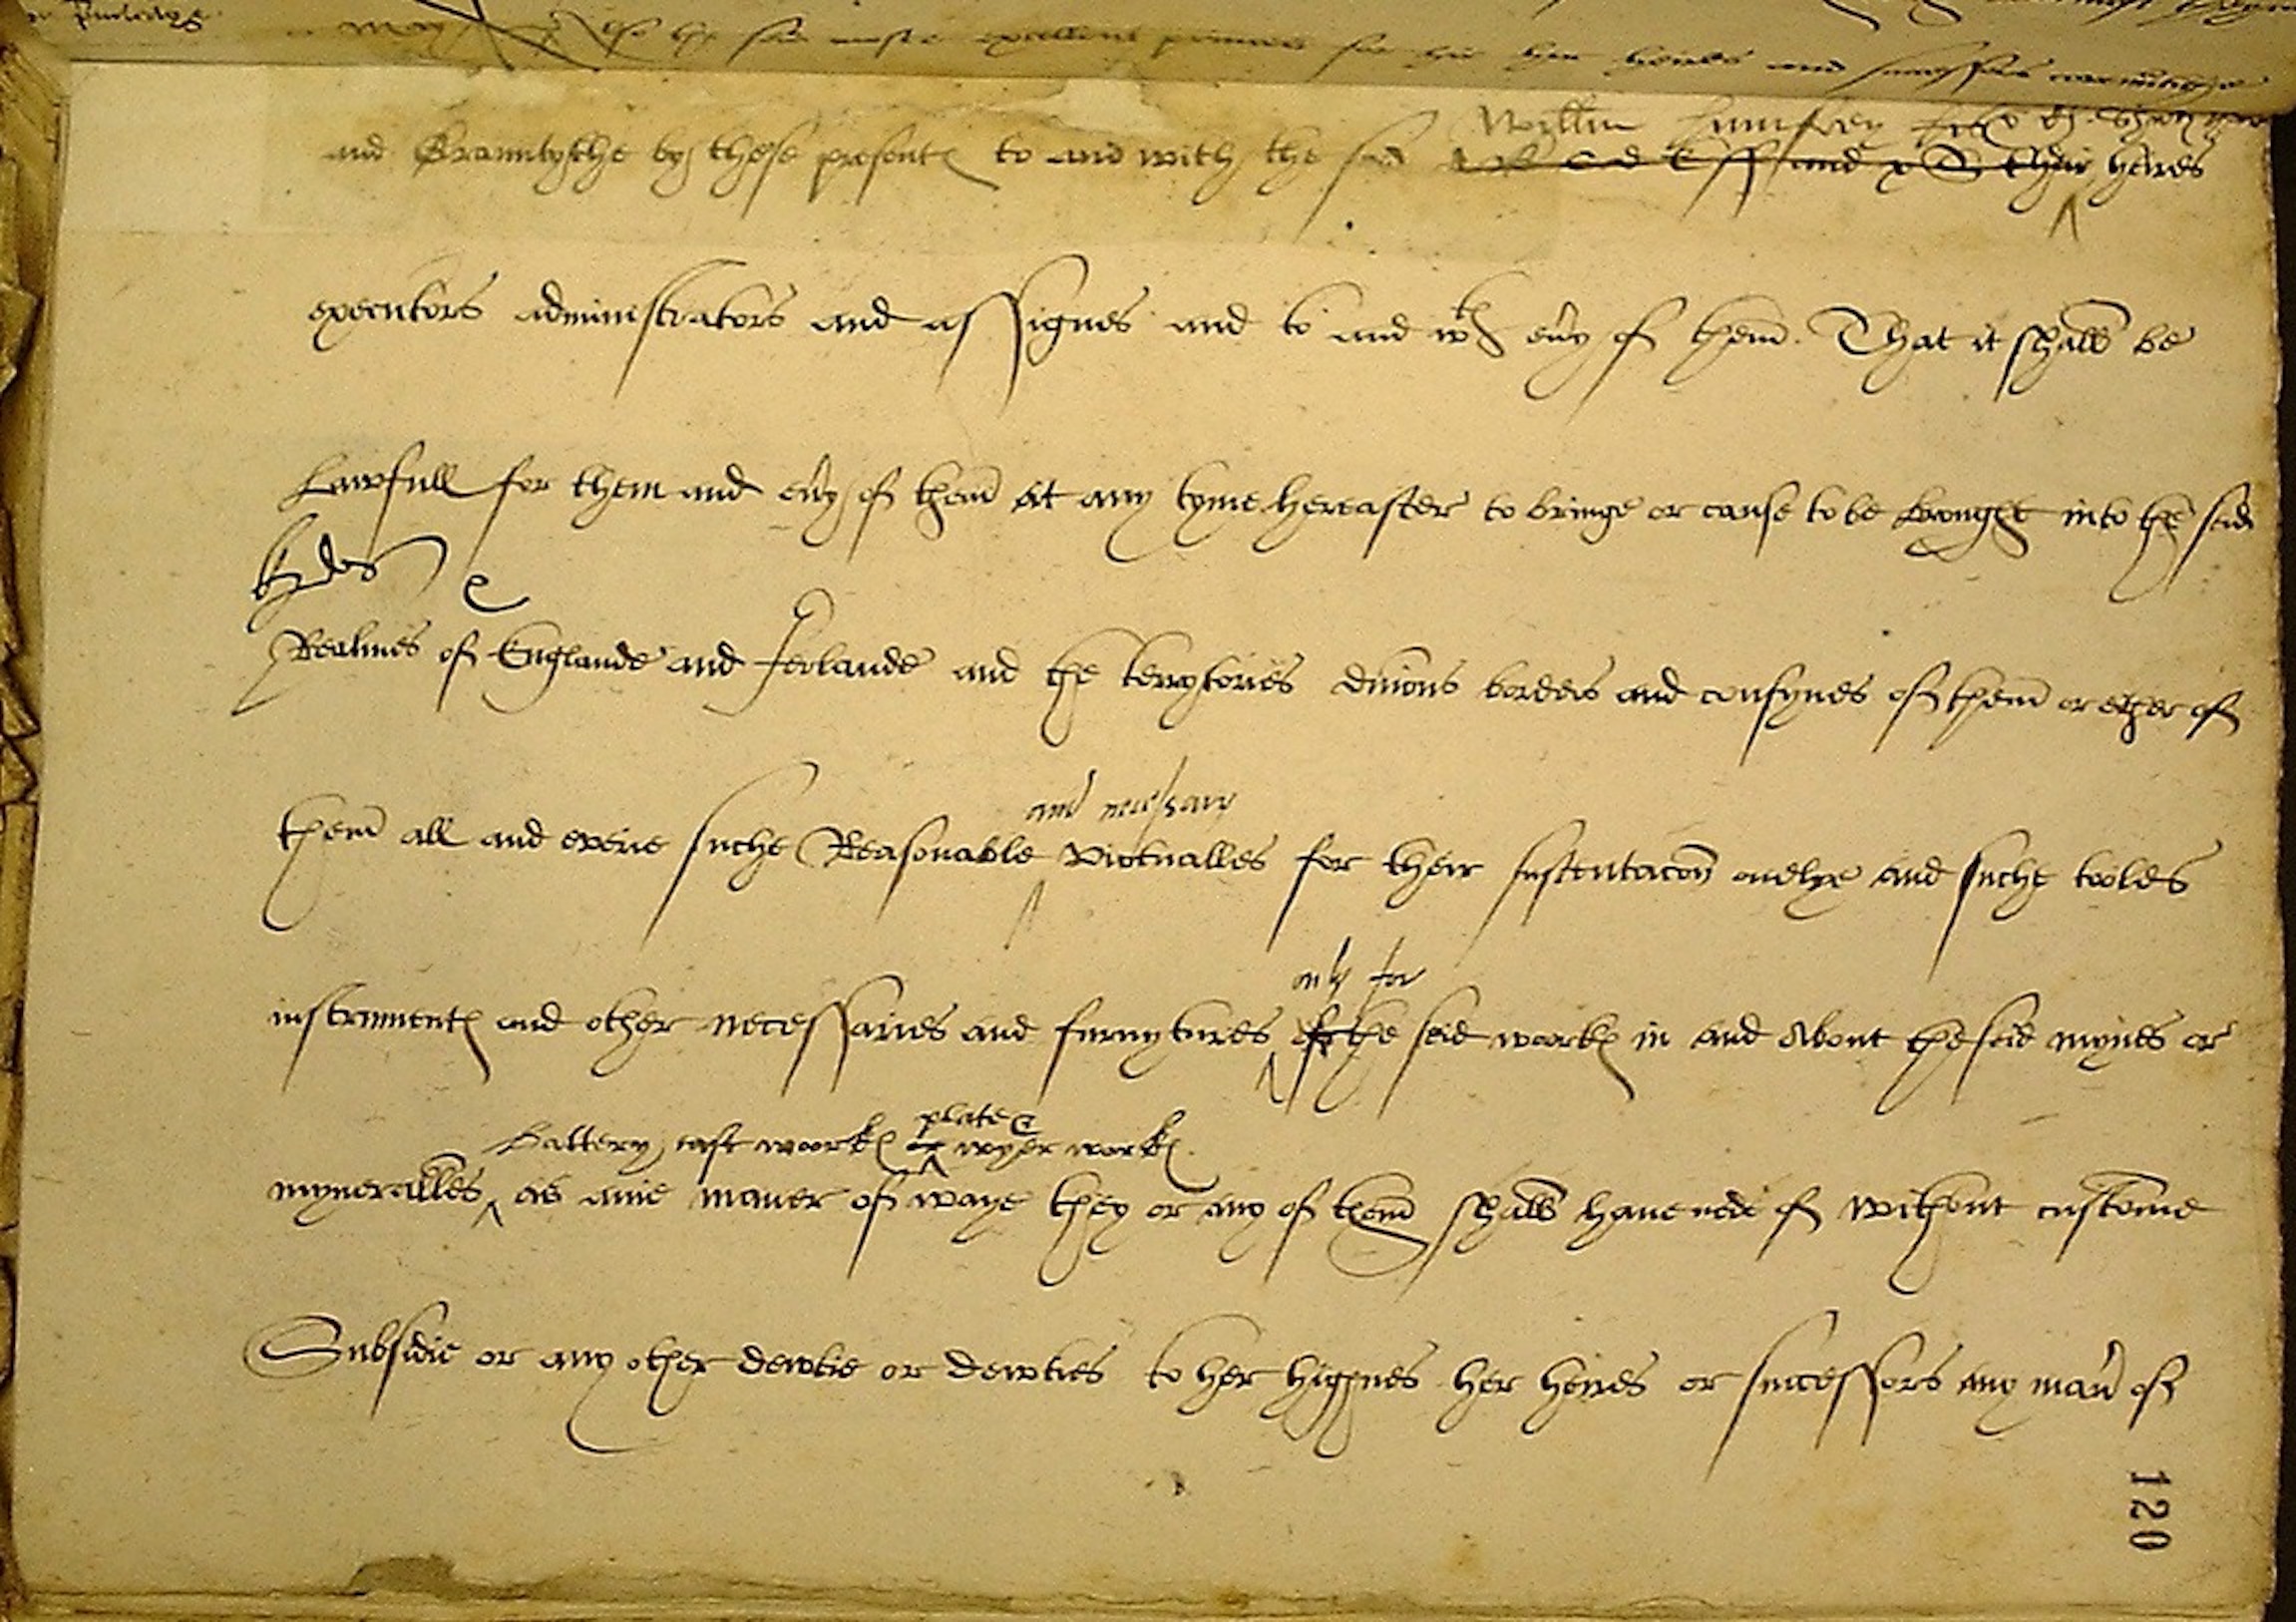 priviledge
May the said moste excellent princes for her heires and successors
Willm Humfrey
and Grauntythe by these presentes to and with the said A B C D E ff and their heires
executors administrators and assignes and to and wth eūy of them̄. That it shall be
Lawfull for them and eūy of them̄ at any tyme hereafter to bringe or cause to be brought into the said
Realmes of Englande and Ierlande and the terrytories dm̄ons borders and confynes of them̄ or either of
and necessary
them̄ all and everie suche Reasonable victualles for their sustentacōn onelye and suche tooles
only for
instrumentes and other necessaries and furnytures of the seid woorkes in and about the seid mynes or
plate &
Battery cast woorkes or wyer workes
myneralles as anie maner of waye they or any of them̄ shall have nede of without custome
Subsidie or any other dewtie or dewties to her highnes her heires or successors any man̄ of
120